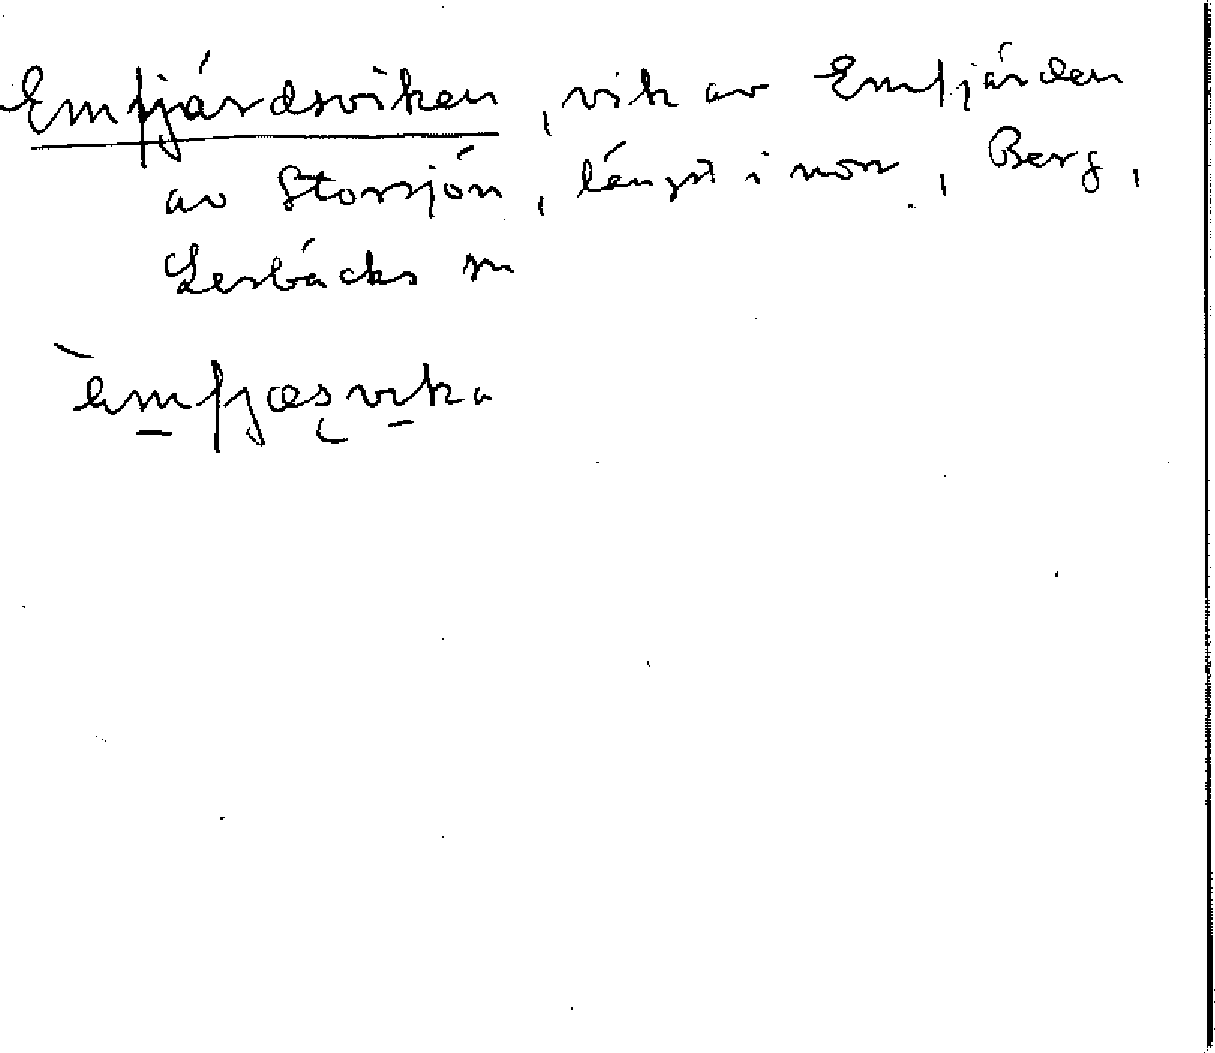 Emfjärdsviken, vik av Emfjärden
av Storsjön, längst i norr, Berg,
Lerbäcks sn
èmfjæsvika